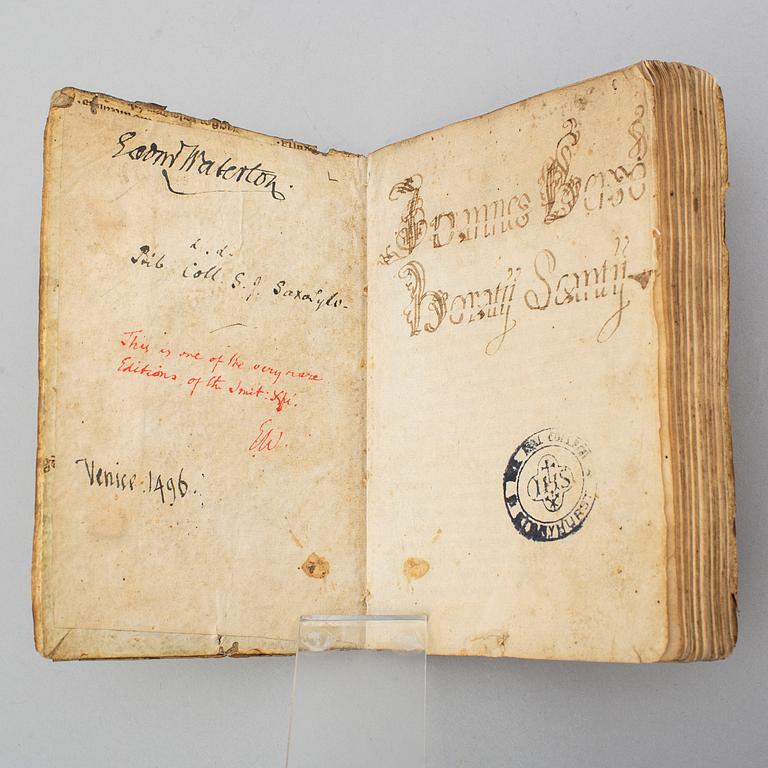 Edmd Waterton.
d. d.
Bib. Coll. S. J. Saxosylv-
This is one of the very rare
Editions of the Imit: Xti.
EW.
Venice. 1496.
Joannes
Horatij Santij
COLLEGE
STONYHURST
IHS